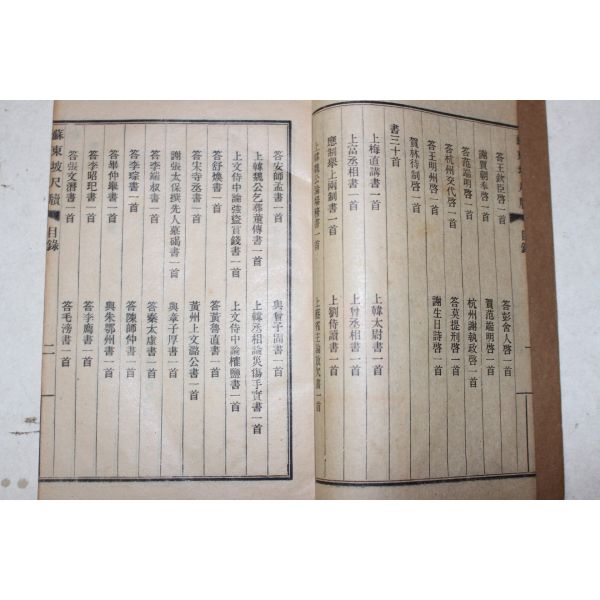 答王欽臣啓一首
答彭舍人啓一首
謝賈朝奉啓一首
賀范端明啓一首
答范端明啓一首
杭州謝執政啓一首
答杭州交代啓一首
答莫提刑啓一首
答王明州啓一首
謝生日詩啓一首
賀林待制啓一首
書三十首
上梅直講書一首
上韓太尉書一首
上富丞相書一首
上曾丞相書一首
應制舉上兩制書一首
上劉侍讀書一首
上韓魏公論場務書一首
答安師孟書一首
與曾子固書一首
上韓魏公乞葬董傳書一首
上韓丞相論災傷手實書一首
上文侍中論強盜賞錢書一首
上文侍中論榷鹽書一首
答舒煥書一首
答黃魯直書一首
答宋寺丞書一首
黃州上文潞公書一首
謝張太保撰先人墓碣書一首
與章子厚書一首
答李端叔書一首
答秦太虛書一首
答李琮書一首
答陳師仲書一首
答畢仲舉書一首
與朱鄂州書一首
答李昭玘書一首
答李廌書一首
答張文潛書一首
答毛滂書一首
蘇東坡尺牘
目錄
二